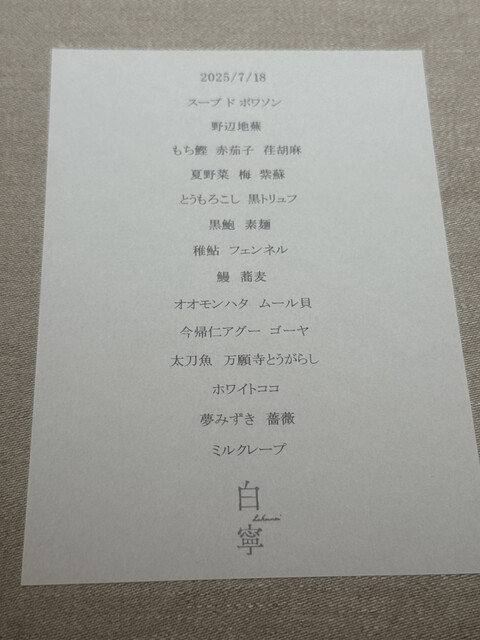 2025/7/18
スープ ド ポワソン
野辺地蕪
もち鰹 赤茄子 荏胡麻
夏野菜 梅 紫蘇
とうもろこし 黒トリュフ
黒鮑 素麺
稚鮎 フェンネル
鰻 蕎麦
オオモンハタ ムール貝
今帰仁アグー ゴーヤ
太刀魚 万願寺とうがらし
ホワイトココ
夢みずき 薔薇
ミルクレープ
白
寧